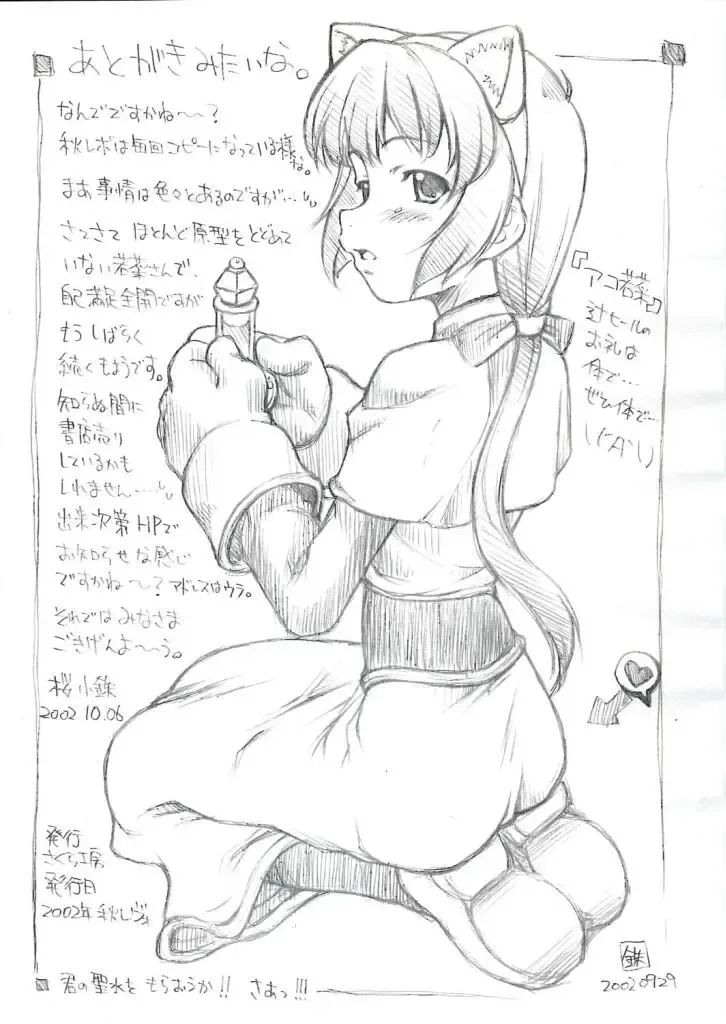 あとがきみたいな。
なんでですかね〜〜?
秋レボは毎回コピーになっている様な。
まあ事情は色々とあるのですが…
さてさて ほとんど原型をとどめて
いない若菜さんで、
自己満足全開ですが
もうしばらく
続くもようです。
知らぬ間に
書店売り
しているかも
しれません……
出来次第HPで
お知らせな感じ
ですかね〜〜? アドレスはウラ。
それではみなさま
ごきげんよ〜〜う。
桜小鉄
2002.10.06
『アコ若菜』
辻ヒールの
お礼は
体で…
ぜひ体で…
発行
さくら工房
発行日
2002年秋レヴォ
君の聖水をもらおうか!! さあっ!!!
20020929